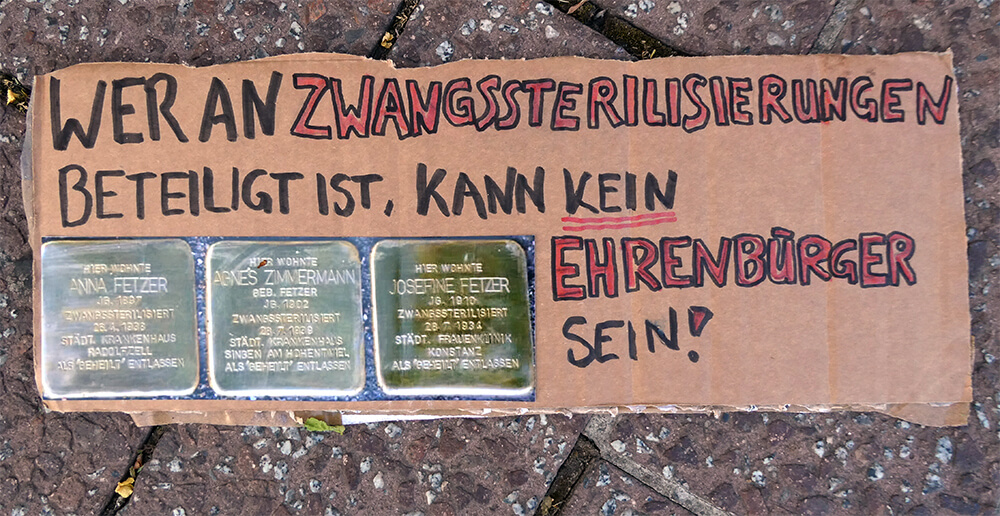 WER AN ZWANGSSTERILISIERUNGEN
BETEILIGT IST, KANN KEIN
EHRENBÜRGER
SEIN!
HIER WOHNTE
ANNA FETZER
JG. 1897
ZWANGSSTERILISIERT
STÄDT. KRANKENHAUS
RADOLFZELL
ALS "GEHEILT" ENTLASSEN
HIER WOHNTE
AGNES ZIMMERMANN
GEB. FETZER
JG. 1902
ZWANGSSTERILISIERT
STÄDT. KRANKENHAUS
SINGEN AM HOHENTWIEL
ALS "GEHEILT" ENTLASSEN
HIER WOHNTE
JOSEFINE FETZER
JG. 1910
ZWANGSSTERILISIERT
28.7.1934
STÄDT. FRAUENKLINIK
KONSTANZ
ALS "GEHEILT" ENTLASSEN